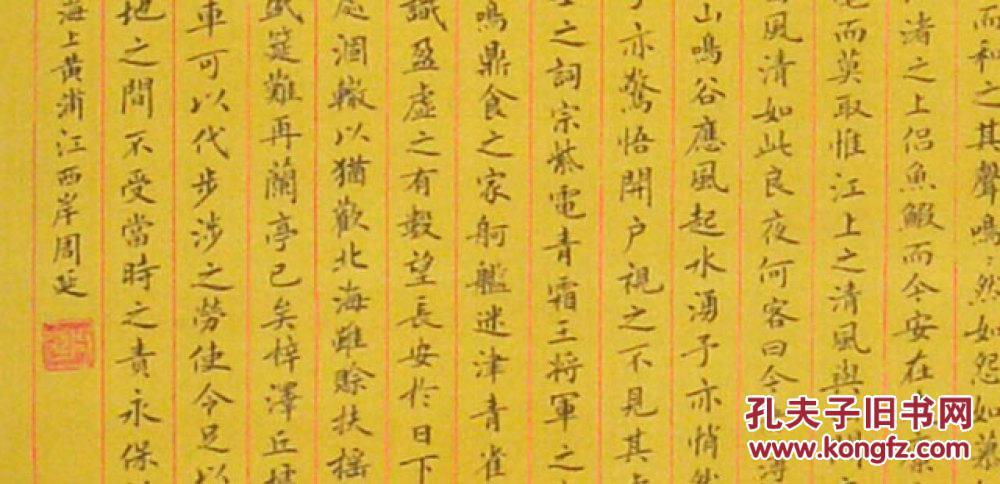 而和之其聲鳴〻然如怨如慕
渚之上侶魚鰕而今安在
而莫取惟江上之清風與
風清如此良夜何客曰今
山鳴谷應風起水湧予亦悄然
亦驚悟開户視之不見其
之詞宗紫電青霜王將軍之
鳴鼎食之家舸艦迷津青雀
識盈虚之有數望長安於日下
處涸轍以猶歡北海雖賒扶摇
盛筵難再蘭亭已矣梓澤丘墟
車可以代步涉之勞使令足以
地之間不受當時之責永保
海上黄浦江西岸周延
孔夫子旧书网
www.kongfz.com